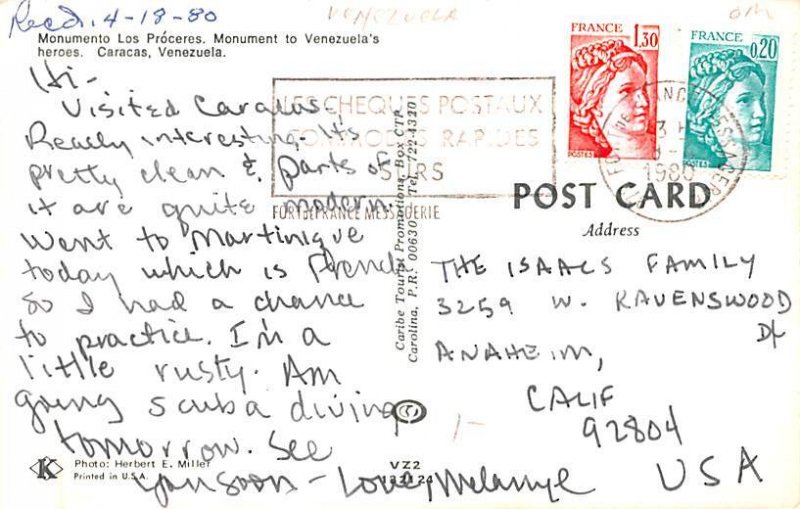 Recd. 4-18-80
VENEZUELA
Monumento Los Próceres. Monument to Venezuela's
heroes. Caracas, Venezuela.
Hi-
Visited Caracas.
Really interesting. It's
pretty clean & parts of
it are quite modern.
Went to Martinique
today which is French
so I had a chance
to practice. I'm a
little rusty. Am
going scuba diving
tomorrow. See
you soon - Love, Melannye
K
Photo: Herbert E. Miller
Printed in U.S.A.
LES CHEQUES POSTAUX
COMMODES RAPIDES
SURS
FORT DE FRANCE MESSAGERIE
Caribe Tourist Promotions, Box CTP
Carolina, P.R. 00630 Tel. 722-4320
VZ2
FRANCE
1,30
POSTES
FRANCE
0,20
POSTES
1980
POST CARD
Address
THE ISAACS FAMILY
3259 W. RAVENSWOOD
Dr
ANAHEIM,
CALIF
92804
USA
1-